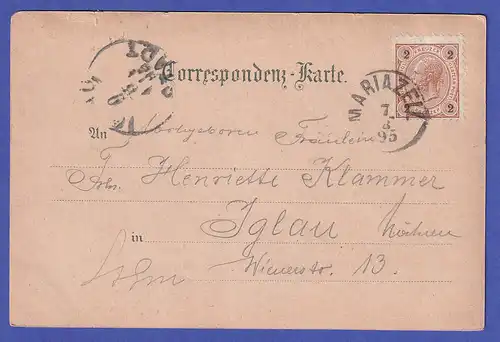 2 2
2 2
Correspondenz-Karte.
MARIAZELL
7
8
95
An Wohlgeboren Fräulein
Henriette Klammer
Iglau Mähren
in
Wienerstr. 13.